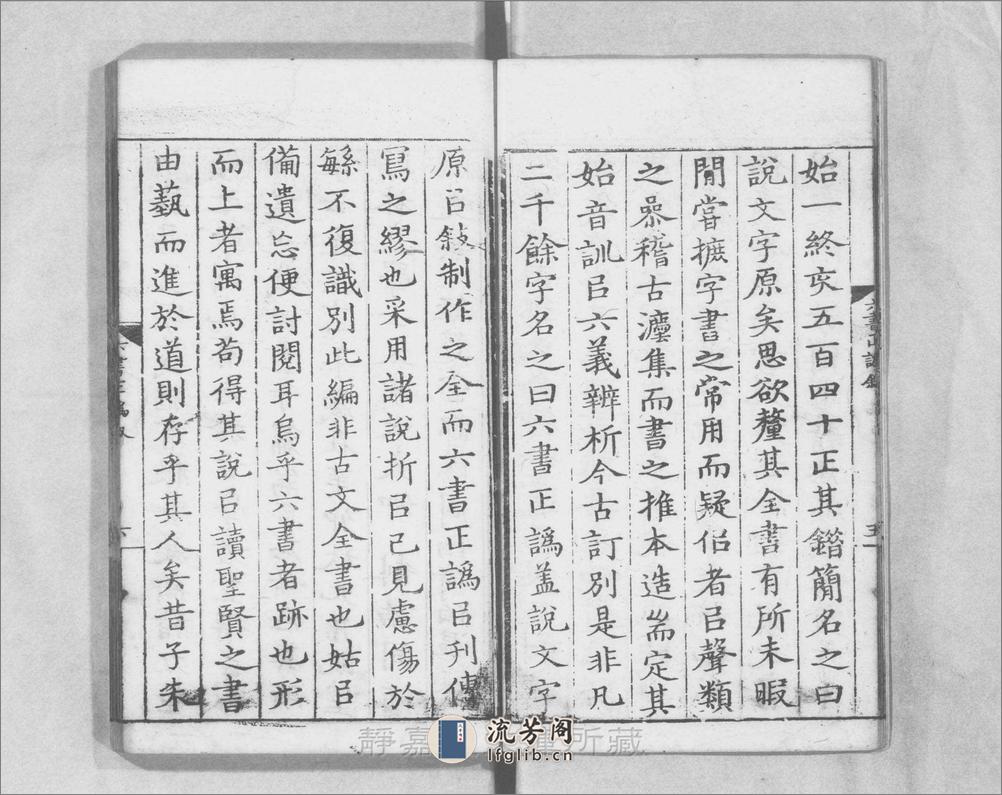 始一終亥五百四十正其鐕簡名之曰
說文字原矣思欲釐其全書有所未暇
閒嘗摭字書之常用而疑佀者㠯聲類
之㬥稽古灋集而書之推本造耑定其
始音訓㠯六義辨析今古訂別是非凡
二千餘字名之曰六書正譌盖說文字
原㠯敍制作之全而六書正譌㠯刋傳
寫之繆也采用諸說折㠯己見慮傷於
緐不復識別此編非古文全書也姑㠯
備遺忘便討閱耳烏乎六書者跡也形
而上者寓焉苟得其說㠯讀聖賢之書
由蓺而進於道則存乎其人矣昔子朱
六書正譌
五
靜嘉堂文庫所藏
流芳阁
lfglib.cn